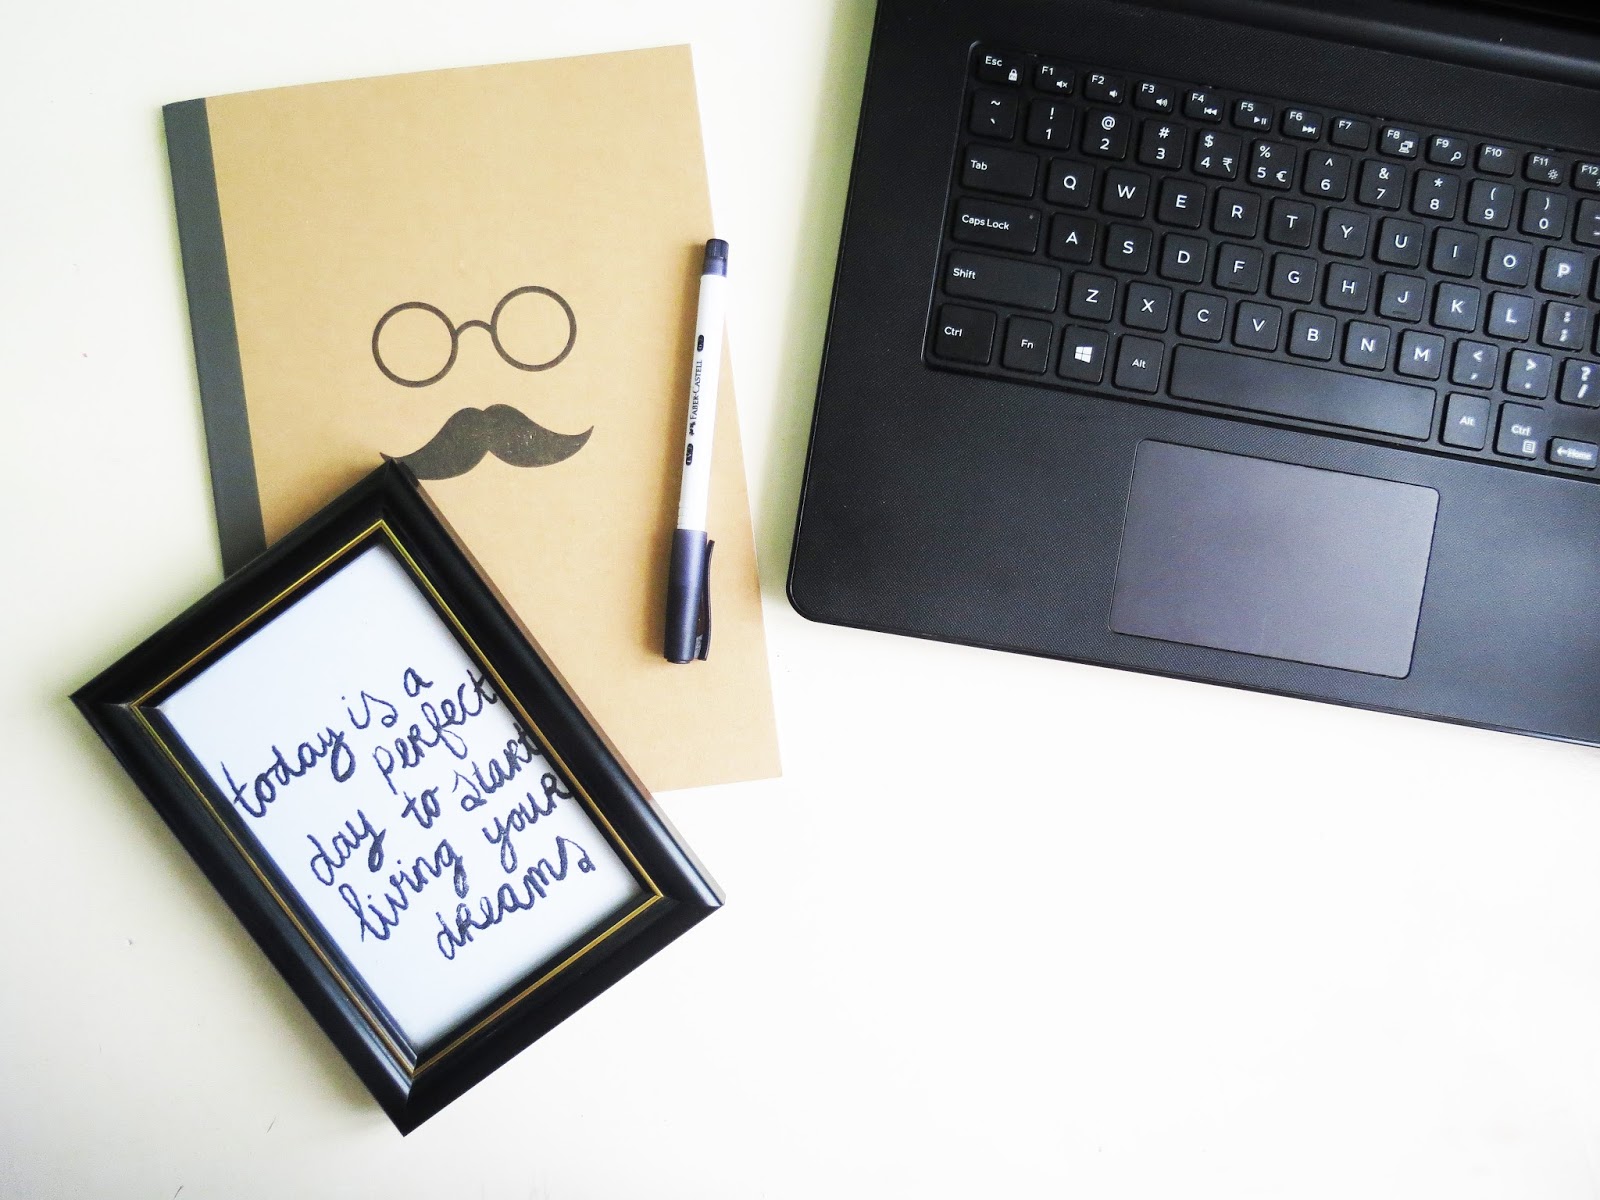 today is a
perfect
day to start
living your
dreams
FABER-CASTELL
Esc F1 F2 F3 F4 F5 F6 F7 F8 F9 F10 F11 F12
~ ! @ # $ % ^ & * ( )
` 1 2 3 4 ₹ 5 € 6 7 8 9 0
Tab Q W E R T Y U I O P
Caps Lock A S D F G H J K L : ;
Shift Z X C V B N M < , > . ? /
Ctrl Fn Alt Alt Ctrl Home